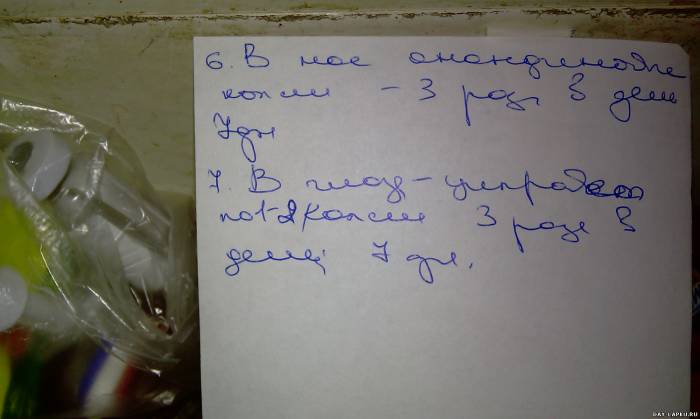 6. В нос анандиновые
капли – 3 раза в день
7 дн
7. В глаз – ципровет
по 1-2 капли 3 раза в
день 7 дн.
DAY.LAPKI.RU